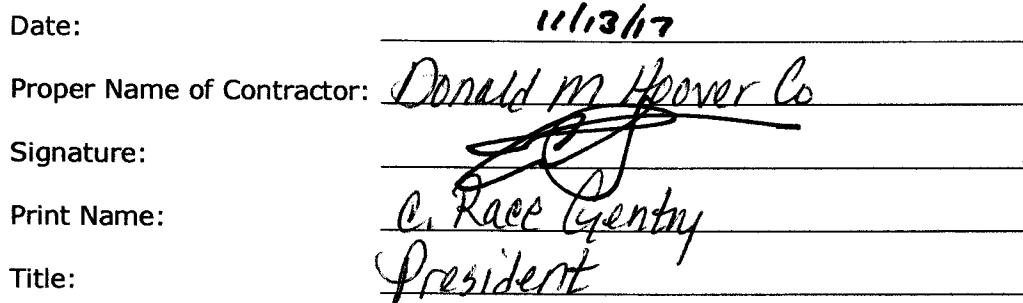 Date: 11/13/17
Proper Name of Contractor: Donald M Hoover Co
Signature:
Print Name: C. Race Gentry
Title: President